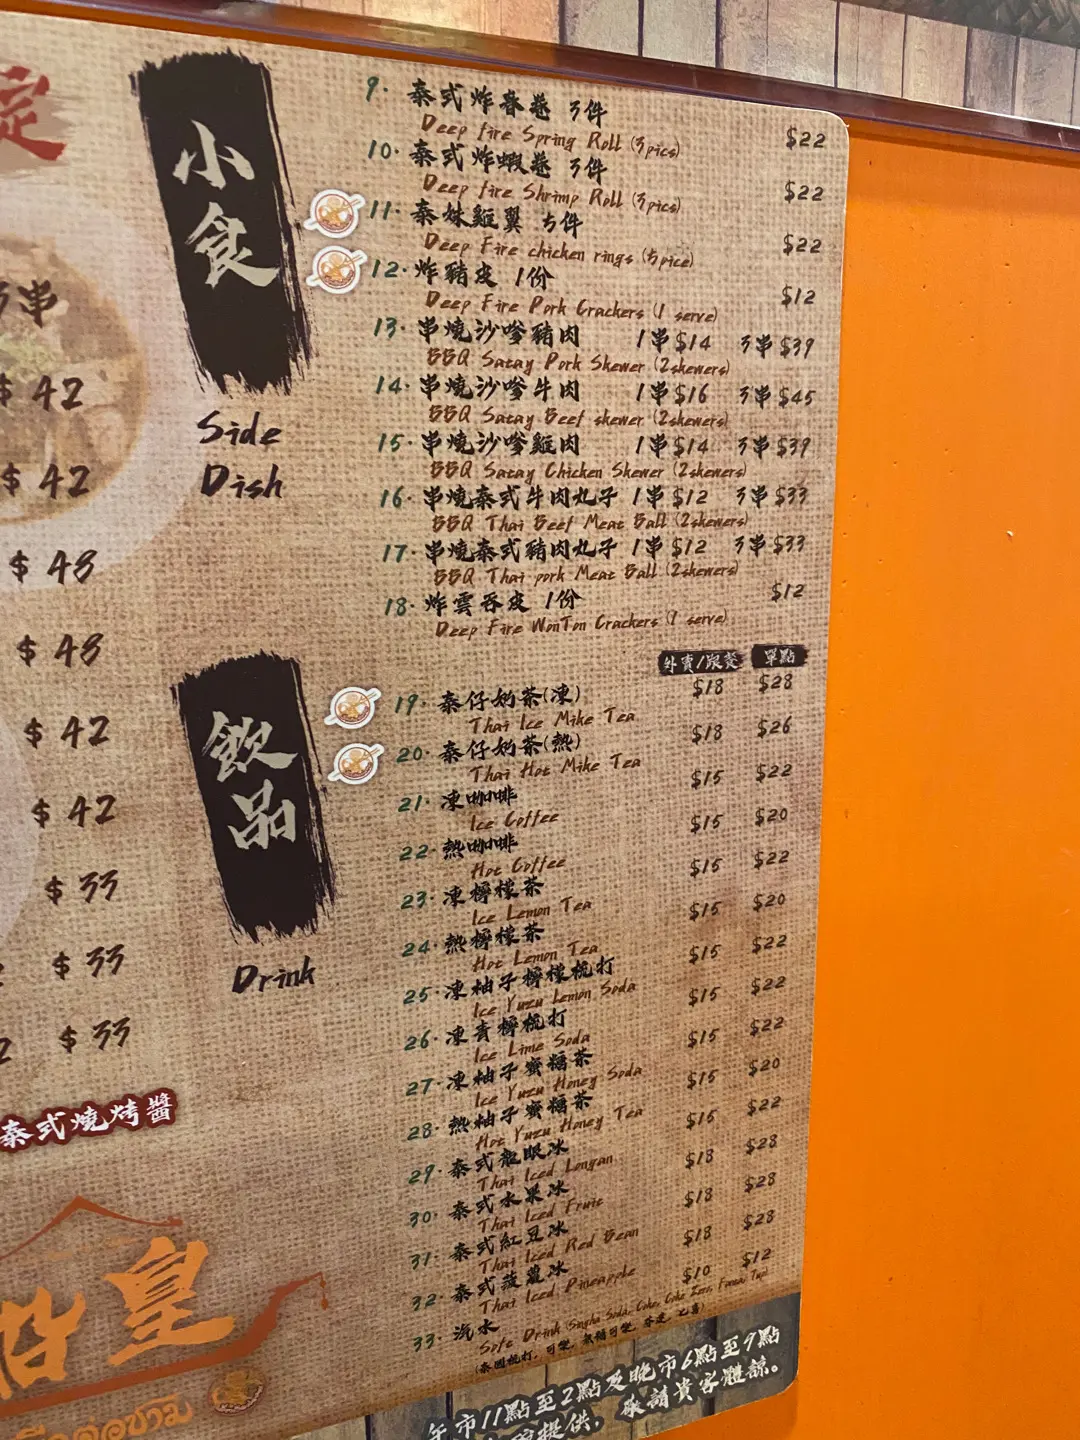 定
串
$ 42
$ 42
$ 48
$ 48
$ 42
$ 42
$ 33
$ 33
$ 33
泰式燒烤醬
皇
小食
Side
Dish
9. 泰式炸春卷 3件 $22
Deep fire Spring Roll (3pics)
10. 泰式炸蝦卷 3件 $22
Deep fire Shrimp Roll (3pics)
11. 泰妹雞翼 5件 $22
Deep Fire chicken rings (5pice)
12. 炸豬皮 1份 $12
Deep Fire Pork Crackers (1 serve)
13. 串燒沙嗲豬肉 1串$14 3串$39
BBQ Satay Pork Skewer (2skewers)
14. 串燒沙嗲牛肉 1串$16 3串$45
BBQ Satay Beef skewer (2skewers)
15. 串燒沙嗲雞肉 1串$14 3串$39
BBQ Satay Chicken Skewer (2skewers)
16. 串燒泰式牛肉丸子 1串$12 3串$33
BBQ Thai Beef Meat Ball (2skewers)
17. 串燒泰式豬肉丸子 1串$12 3串$33
BBQ Thai pork Meat Ball (2skewers)
18. 炸雲吞皮 1份 $12
Deep Fire WonTon Crackers (1 serve)
飲品
Drink
外賣/跟餐 單點
19. 泰仔奶茶(凍) $18 $28
Thai Ice Mike Tea
20. 泰仔奶茶(熱) $18 $26
Thai Hot Mike Tea
21. 凍咖啡 $15 $22
Ice Coffee
22. 熱咖啡 $15 $20
Hot Coffee
23. 凍檸檬茶 $15 $22
Ice Lemon Tea
24. 熱檸檬茶 $15 $20
Hot Lemon Tea
25. 凍柚子檸檬梳打 $15 $22
Ice Yuzu Lemon Soda
26. 凍青檸梳打 $15 $22
Ice Lime Soda
27. 凍柚子蜜糖茶 $15 $22
Ice Yuzu Honey Soda
28. 熱柚子蜜糖茶 $15 $20
Hot Yuzu Honey Tea
29. 泰式龍眼冰 $15 $22
Thai Iced Longan
30. 泰式水果冰 $18 $28
Thai Iced Fruit
31. 泰式紅豆冰 $18 $28
Thai Iced Red Bean
32. 泰式菠蘿冰 $18 $28
Thai Iced Pineapple
33. 汽水 $10 $12
Soft Drink (Singha Soda, Coke, Coke Zero, Fanta, 7up)
(泰國梳打, 可樂, 無糖可樂, 芬達, 七喜)
午市11點至2點及晚市6點至9點
提供, 敬請貴客體諒。